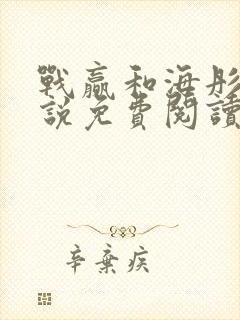 戰贏和海彤
說免費閱讀
辛棄疾